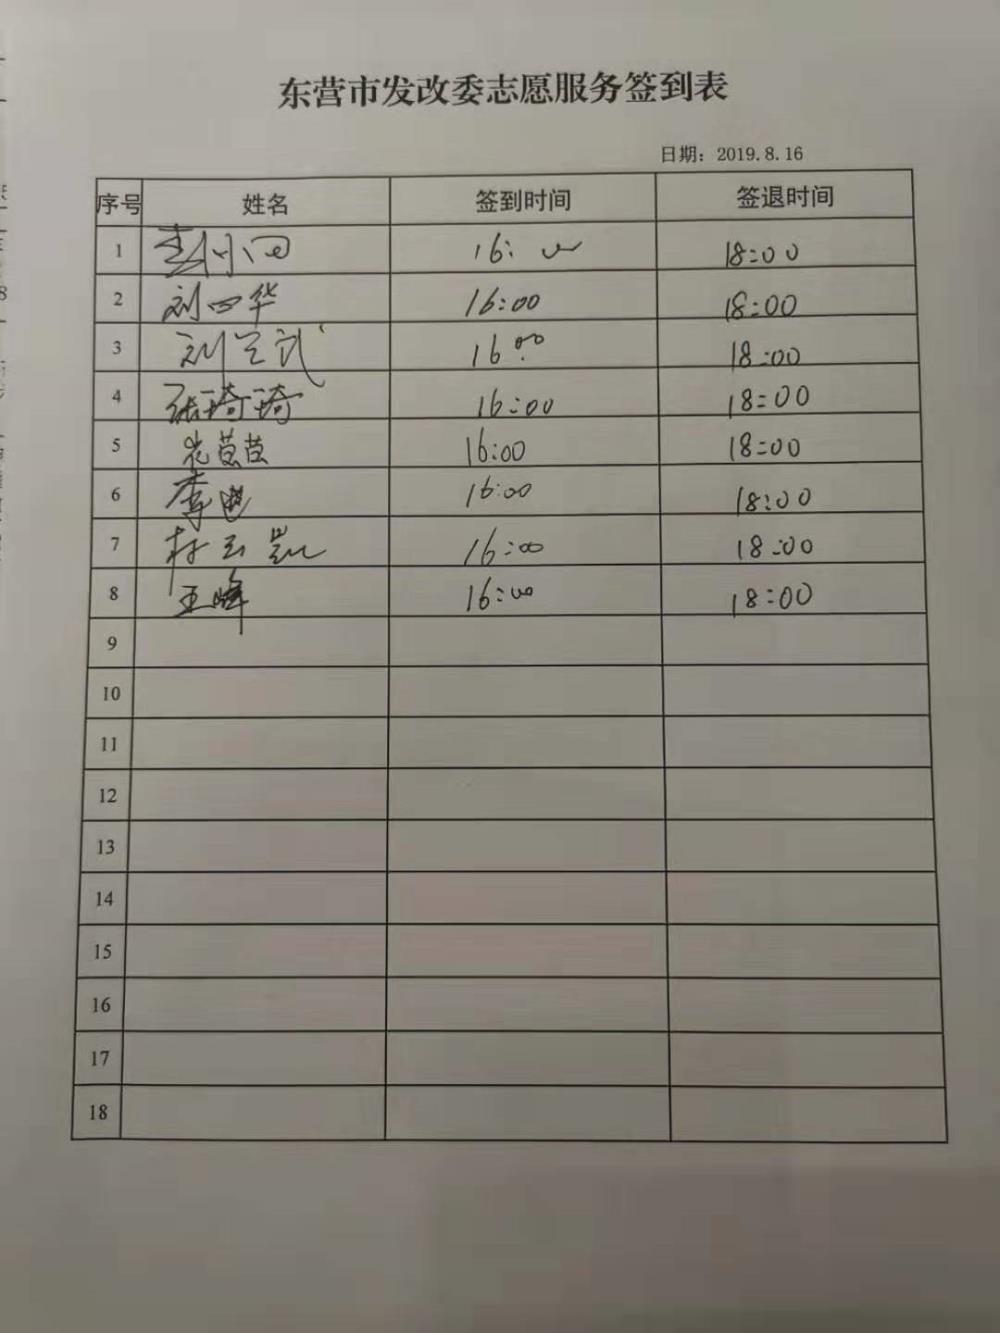 东营市发改委志愿服务签到表
日期：2019.8.16
序号 姓名 签到时间 签退时间
1 16:00 18:00
2 刘四华 16:00 18:00
3 刘兰武 16:00 18:00
4 张琦琦 16:00 18:00
5 苗苗 16:00 18:00
6 李 16:00 18:00
7 16:00 18:00
8 王峰 16:00 18:00
9
10
11
12
13
14
15
16
17
18